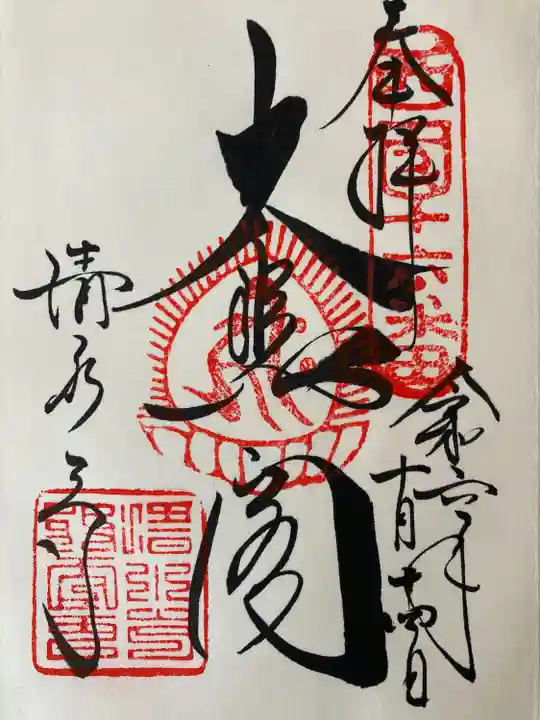 奉拝
西国十六番
令和六年
十月十四日
大悲閣
清水寺